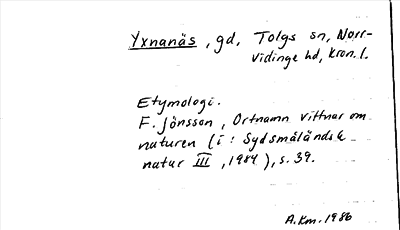 Yxnanäs, gd, Tolgs sn, Norr-
vidinge hd, Kron. l.
Etymologi.
F. Jönsson, Ortnamn vittnar om
naturen (i: Sydsmåländsk
natur III, 1984), s. 39.
A.Km. 1986